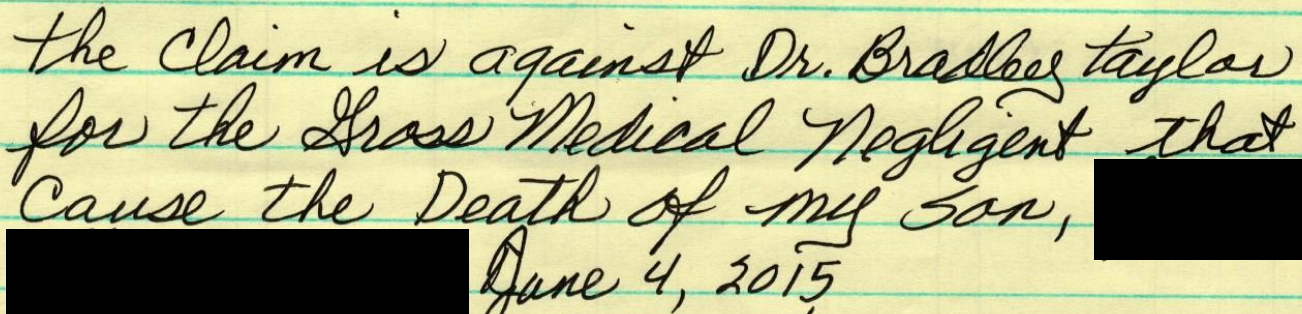 the Claim is against Dr. Bradley taylor
for the Gross Medical Negligent that
Cause the Death of my son,
June 4, 2015